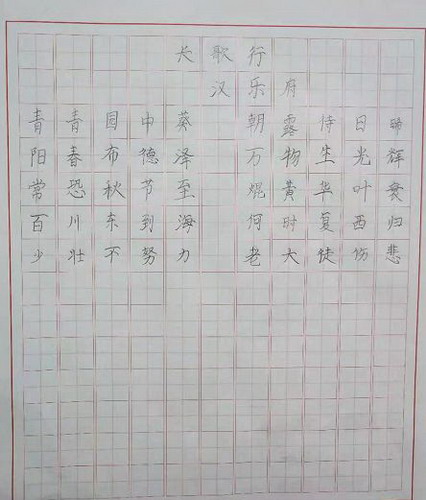 长歌行
汉乐府
青青园中葵 朝露待日晞
阳春布德泽 万物生光辉
常恐秋节至 焜黄华叶衰
百川东到海 何时复西归
少壮不努力 老大徒伤悲